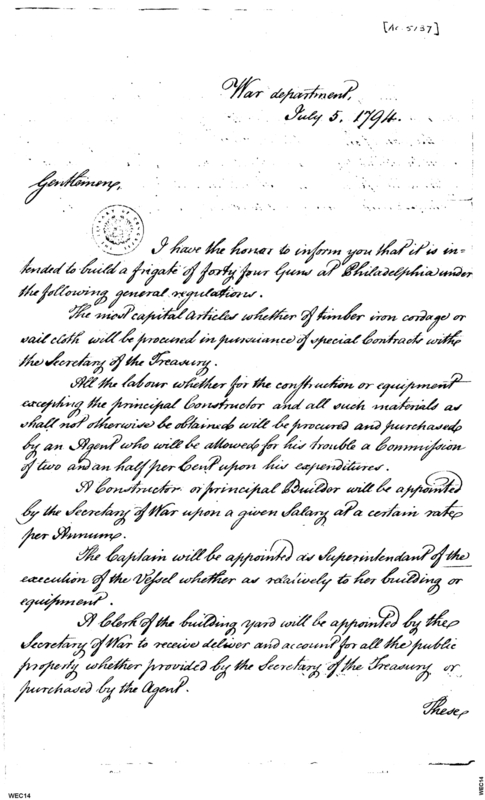 [Ac. 5137]
War department,
July 5. 1794.
Gentlemen,
I have the honor to inform you that it is in=
tended to build a frigate of forty four Guns at Philadelphia under
the following general regulations.
The most capital Articles whether of timber iron cordage or
sail cloth will be procured in pursuance of special Contracts with
the Secretary of the Treasury.
All the labour whether for the construction or equipment
excepting the principal Constructor and all such materials as
shall not otherwise be obtained will be procured and purchased
by an Agent who will be allowed for his trouble a Commission
of two and an half per Cent upon his expenditures.
A Constructor or principal Buildor will be appointed
by the Secretary of War upon a given Salary at a certain rate
per Annum.
The Captain will be appointed as Superintendant of the
execution of the Vessel whether as relatively to her building or
equipment.
A Clerk of the building yard will be appointed by the
Secretary of War to receive deliver and account for all the public
property whether provided by the Secretary of the Treasury or
purchased by the Agent.
These
WEC14
WEC14